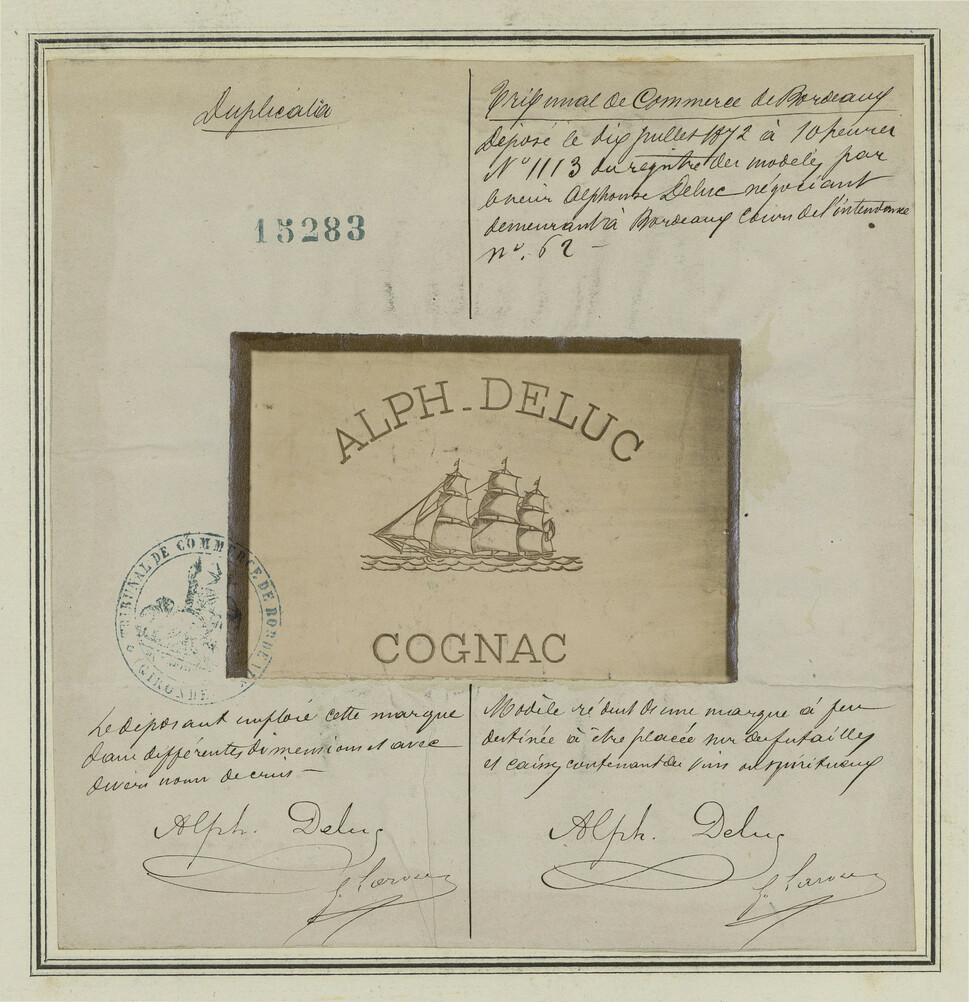 Duplicata
15283
Tribunal de Commerce de Bordeaux
Déposé le dix juillet 1872 à 10 heures
N° 1113 du registre des modèles, par
le sieur Alphonse Deluc négociant
demeurant à Bordeaux Cours de l'intendance
n°. 62
ALPH. DELUC
COGNAC
TRIBUNAL DE COMMERCE DE BORDEAUX
(GIRONDE)
Le déposant emploie cette marque
dans différentes dimensions et avec
divers noms de crus
Alph. Deluc
Modèle réduit d'une marque à feu
destinée à être placée sur des futailles
et caisses contenant des vins ou spiritueux
Alph. Deluc